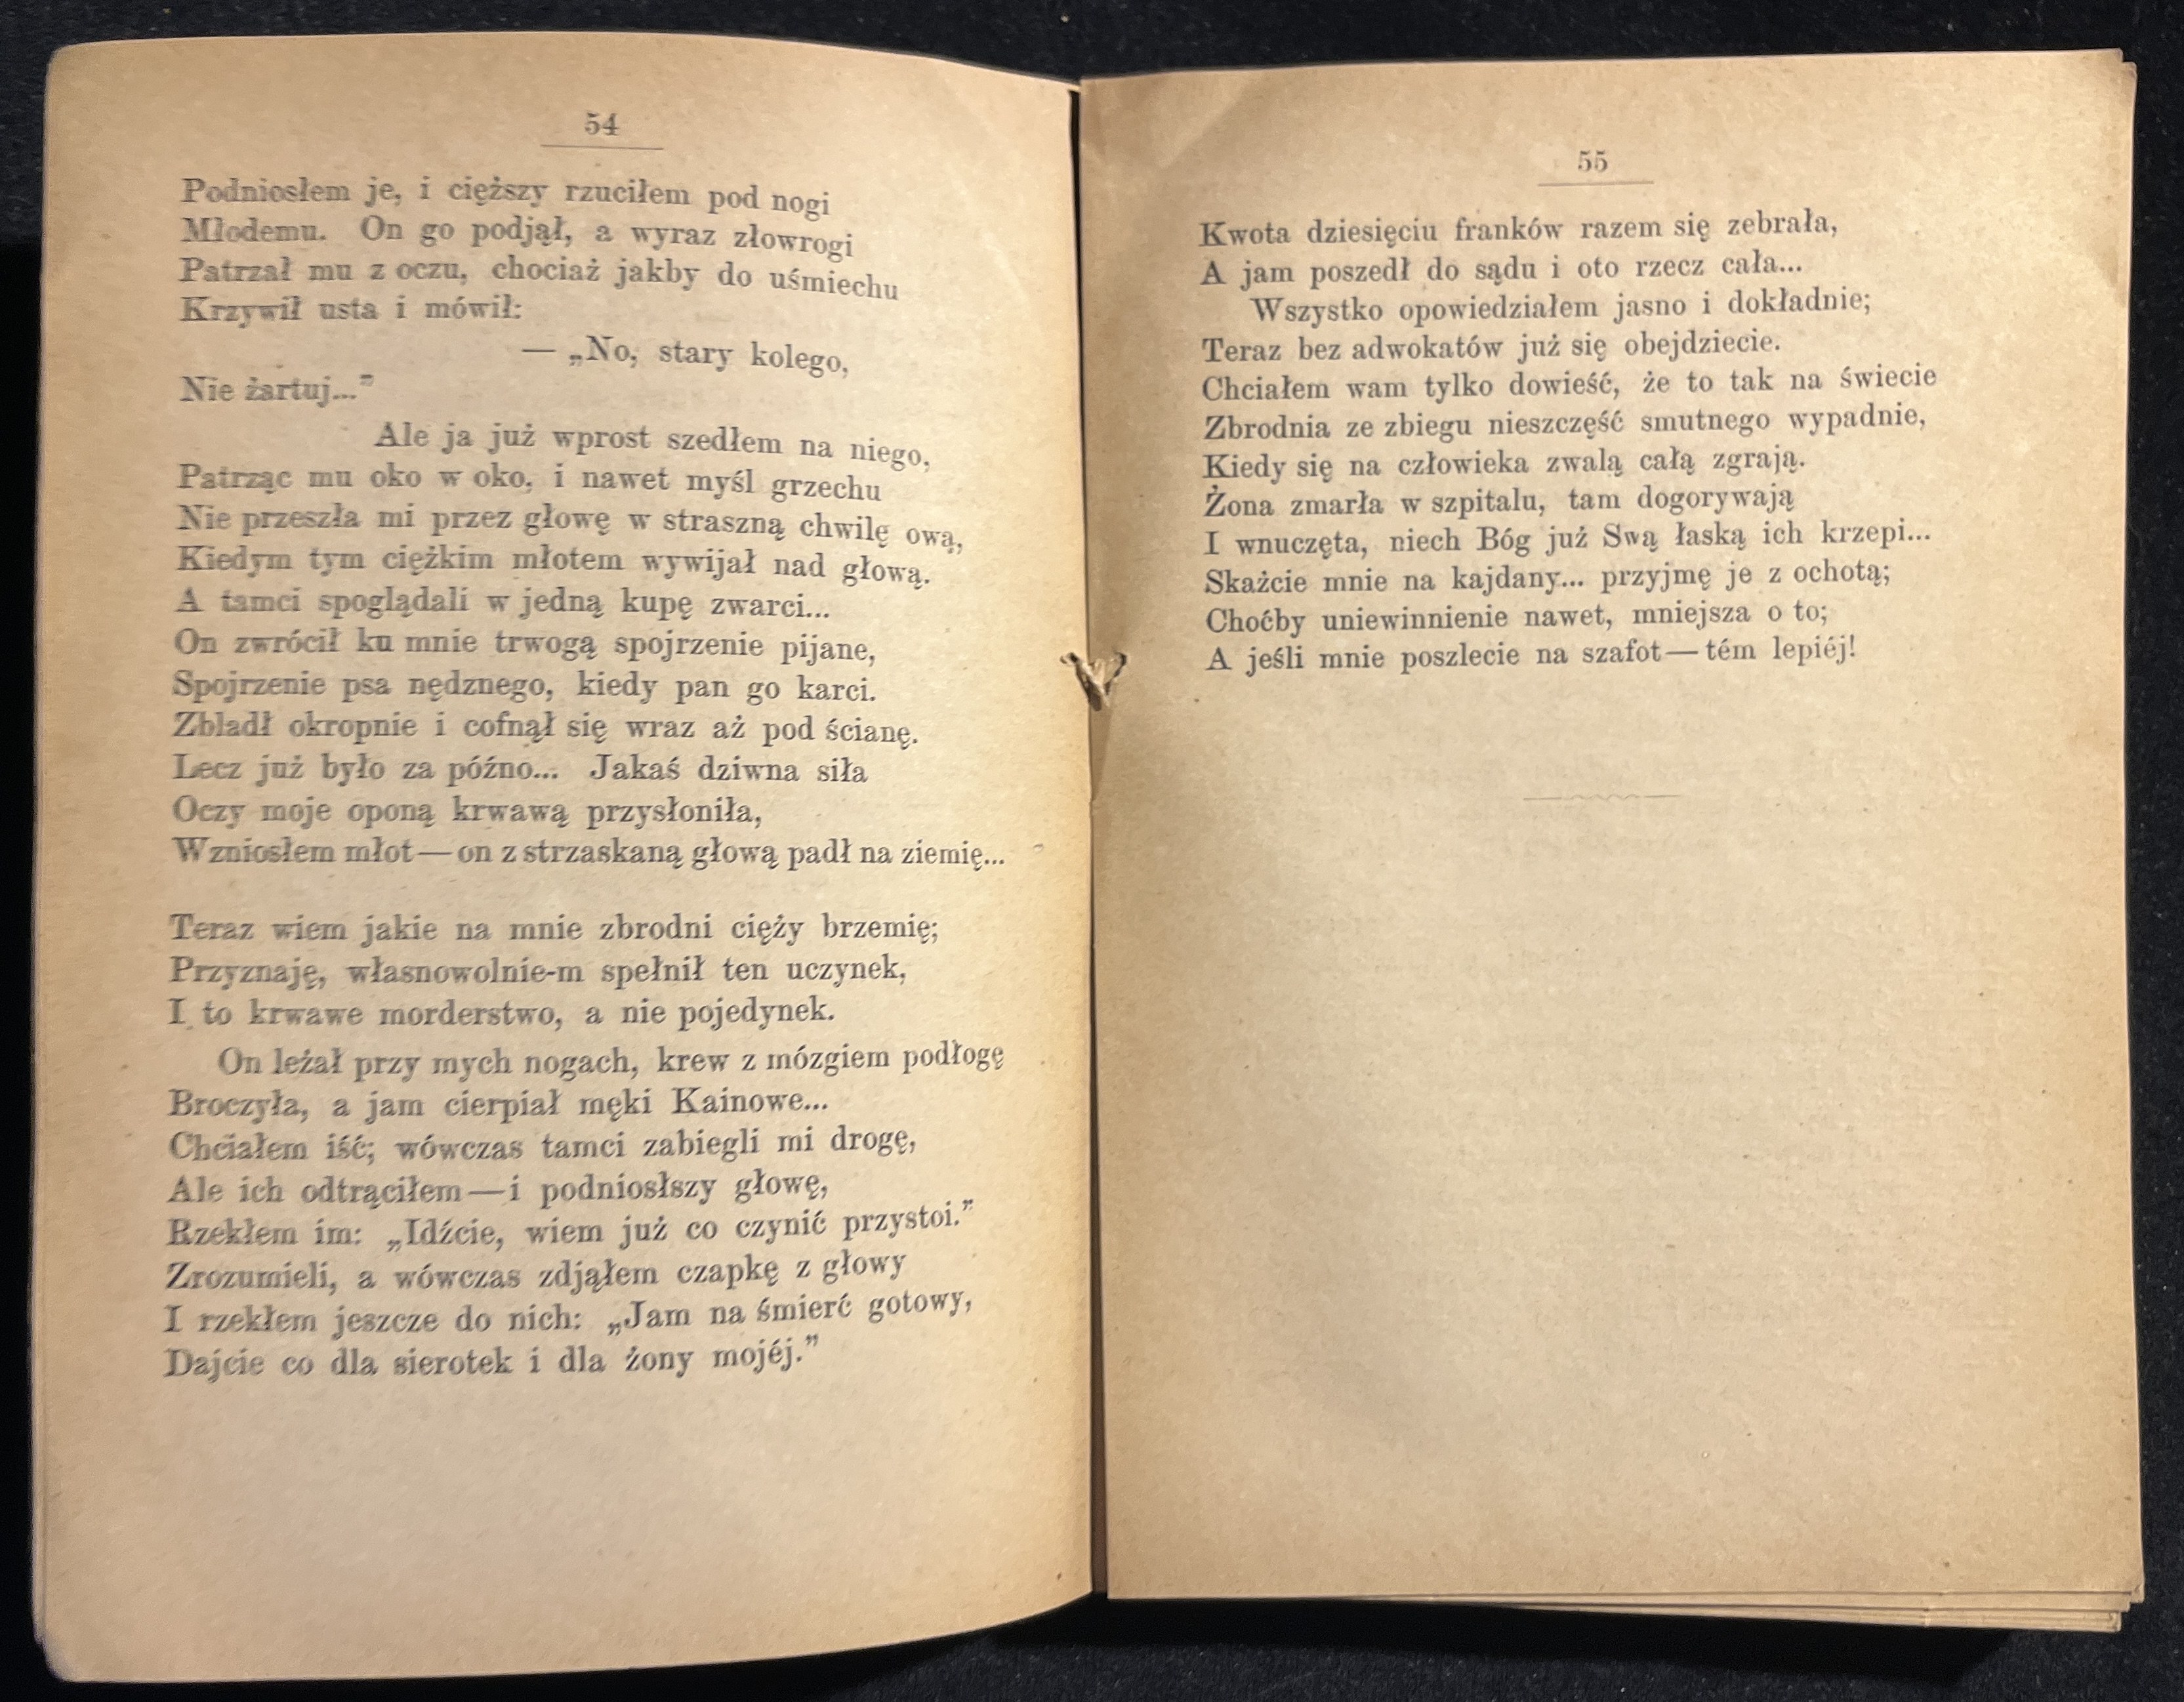 54
Podniosłem je, i cięższy rzuciłem pod nogi
Młodemu. On go podjął, a wyraz złowrogi
Patrzał mu z oczu, chociaż jakby do uśmiechu
Krzywił usta i mówił:
— „No, stary kolego,
Nie żartuj...”
Ale ja już wprost szedłem na niego,
Patrząc mu oko w oko, i nawet myśl grzechu
Nie przeszła mi przez głowę w straszną chwilę ową,
Kiedym tym ciężkim młotem wywijał nad głową.
A tamci spoglądali w jedną kupę zwarci...
On zwrócił ku mnie trwogą spojrzenie pijane,
Spojrzenie psa nędznego, kiedy pan go karci.
Zbladł okropnie i cofnął się wraz aż pod ścianę.
Lecz już było za późno... Jakaś dziwna siła
Oczy moje oponą krwawą przysłoniła,
Wzniosłem młot—on z strzaskaną głową padł na ziemię...
Teraz wiem jakie na mnie zbrodni cięży brzemię;
Przyznaję, własnowolnie-m spełnił ten uczynek,
I to krwawe morderstwo, a nie pojedynek.
On leżał przy mych nogach, krew z mózgiem podłogę
Broczyła, a jam cierpiał męki Kainowe...
Chciałem iść; wówczas tamci zabiegli mi drogę,
Ale ich odtrąciłem—i podniosłszy głowę,
Rzekłem im: „Idźcie, wiem już co czynić przystoi.”
Zrozumieli, a wówczas zdjąłem czapkę z głowy
I rzekłem jeszcze do nich: „Jam na śmierć gotowy,
Dajcie co dla sierotek i dla żony mojéj.”
55
Kwota dziesięciu franków razem się zebrała,
A jam poszedł do sądu i oto rzecz cała...
Wszystko opowiedziałem jasno i dokładnie;
Teraz bez adwokatów już się obejdziecie.
Chciałem wam tylko dowieść, że to tak na świecie
Zbrodnia ze zbiegu nieszczęść smutnego wypadnie,
Kiedy się na człowieka zwalą całą zgrają.
Żona zmarła w szpitalu, tam dogorywają
I wnuczęta, niech Bóg już Swą łaską ich krzepi...
Skażcie mnie na kajdany... przyjmę je z ochotą;
Choćby uniewinnienie nawet, mniejsza o to;
A jeśli mnie poszlecie na szafot—tém lepiéj!